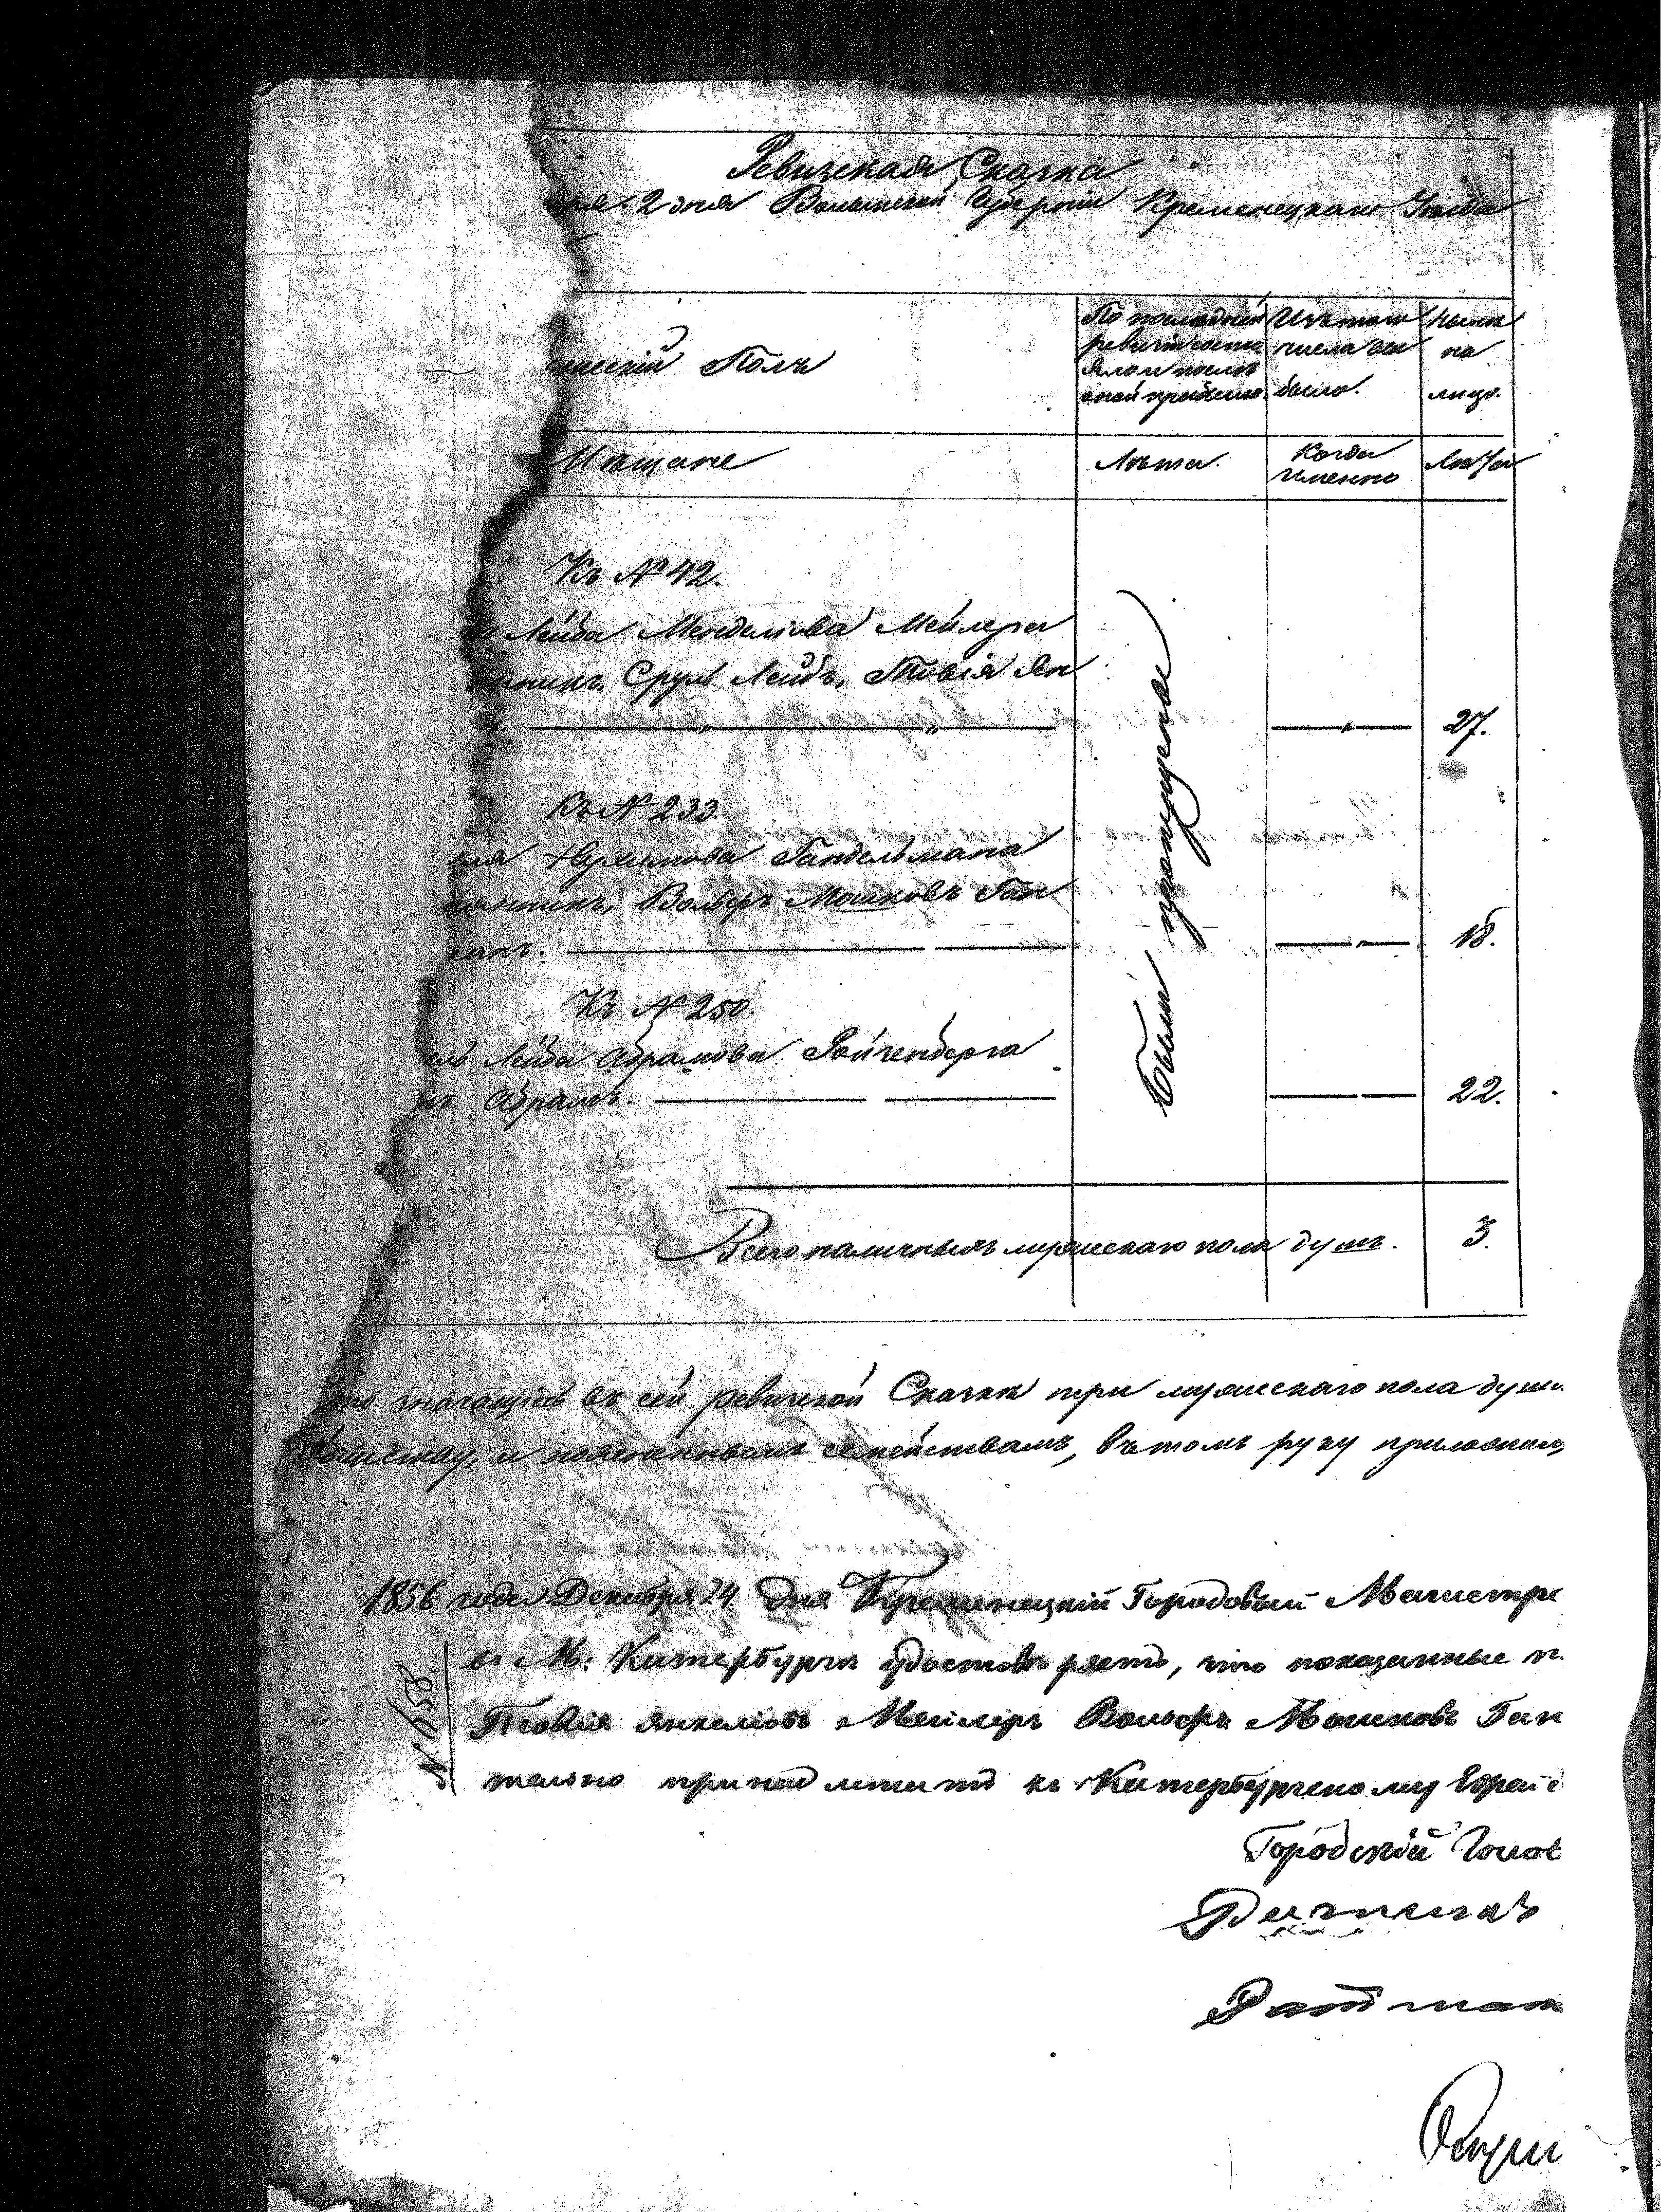 Ревизская Сказка
2 дня Волынской Губерніи Кременецкаго Уѣзда
Полъ
По последней ревизіи состояло и послѣ оной прибыло.
Изъ того числа выбыло.
Нынѣ на лицо.
Мѣщане
Лѣта.
Когда именно
Лѣта
Къ № 42.
Лейба Менделіова Мейлера
Сруль Лейбъ, Товія Ян
27.
Были пропущены
Къ № 233.
Нухимова Гандельмана
Вольфъ Мошковъ Ган
18.
Къ № 250.
Лейба Абрамова Ройзенберга
Абрамъ.
22.
Всего наличныхъ мужескаго пола душъ. 3.
что значащіесь въ сей ревизской Сказкѣ три мужескаго пола души
обществу, и поясненнымъ семействамъ, въ томъ руку приложилъ
1856 года Декабря 24 дня Кременецкій Городовый Магистра
въ М. Китербургѣ удостовѣряетъ, что показанные
№ 658
Товія Янкеліовъ Мейлеръ Вольфъ Мошковъ Ган
тельно принадлежитъ къ Катербургскому Еврей
Городскій Голов
Ратман